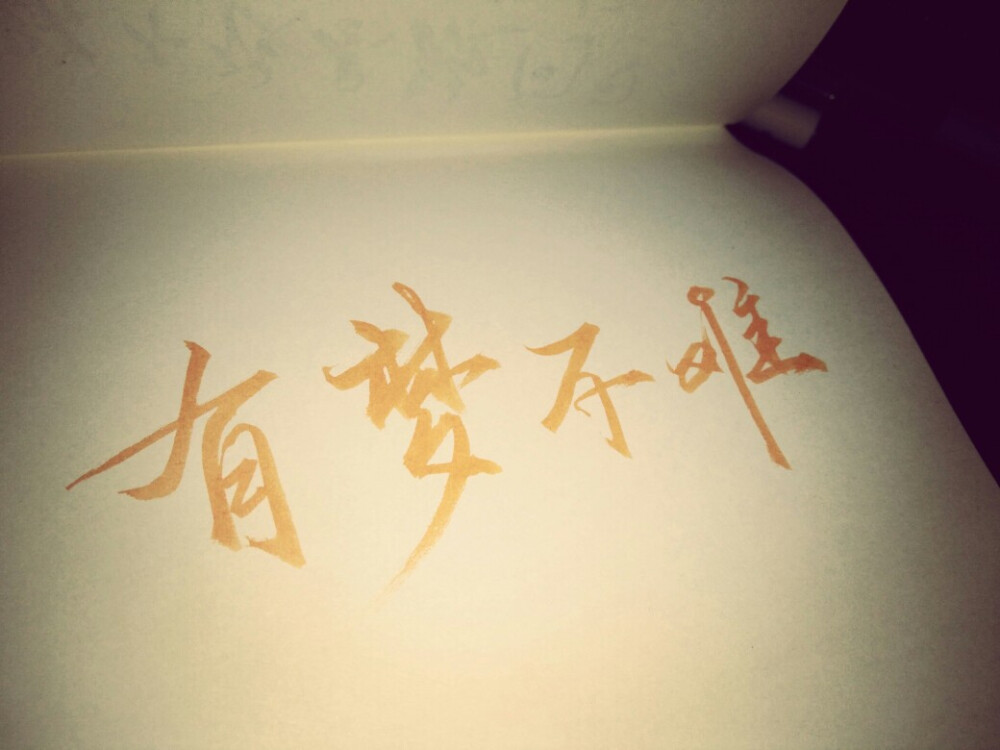 有梦不难